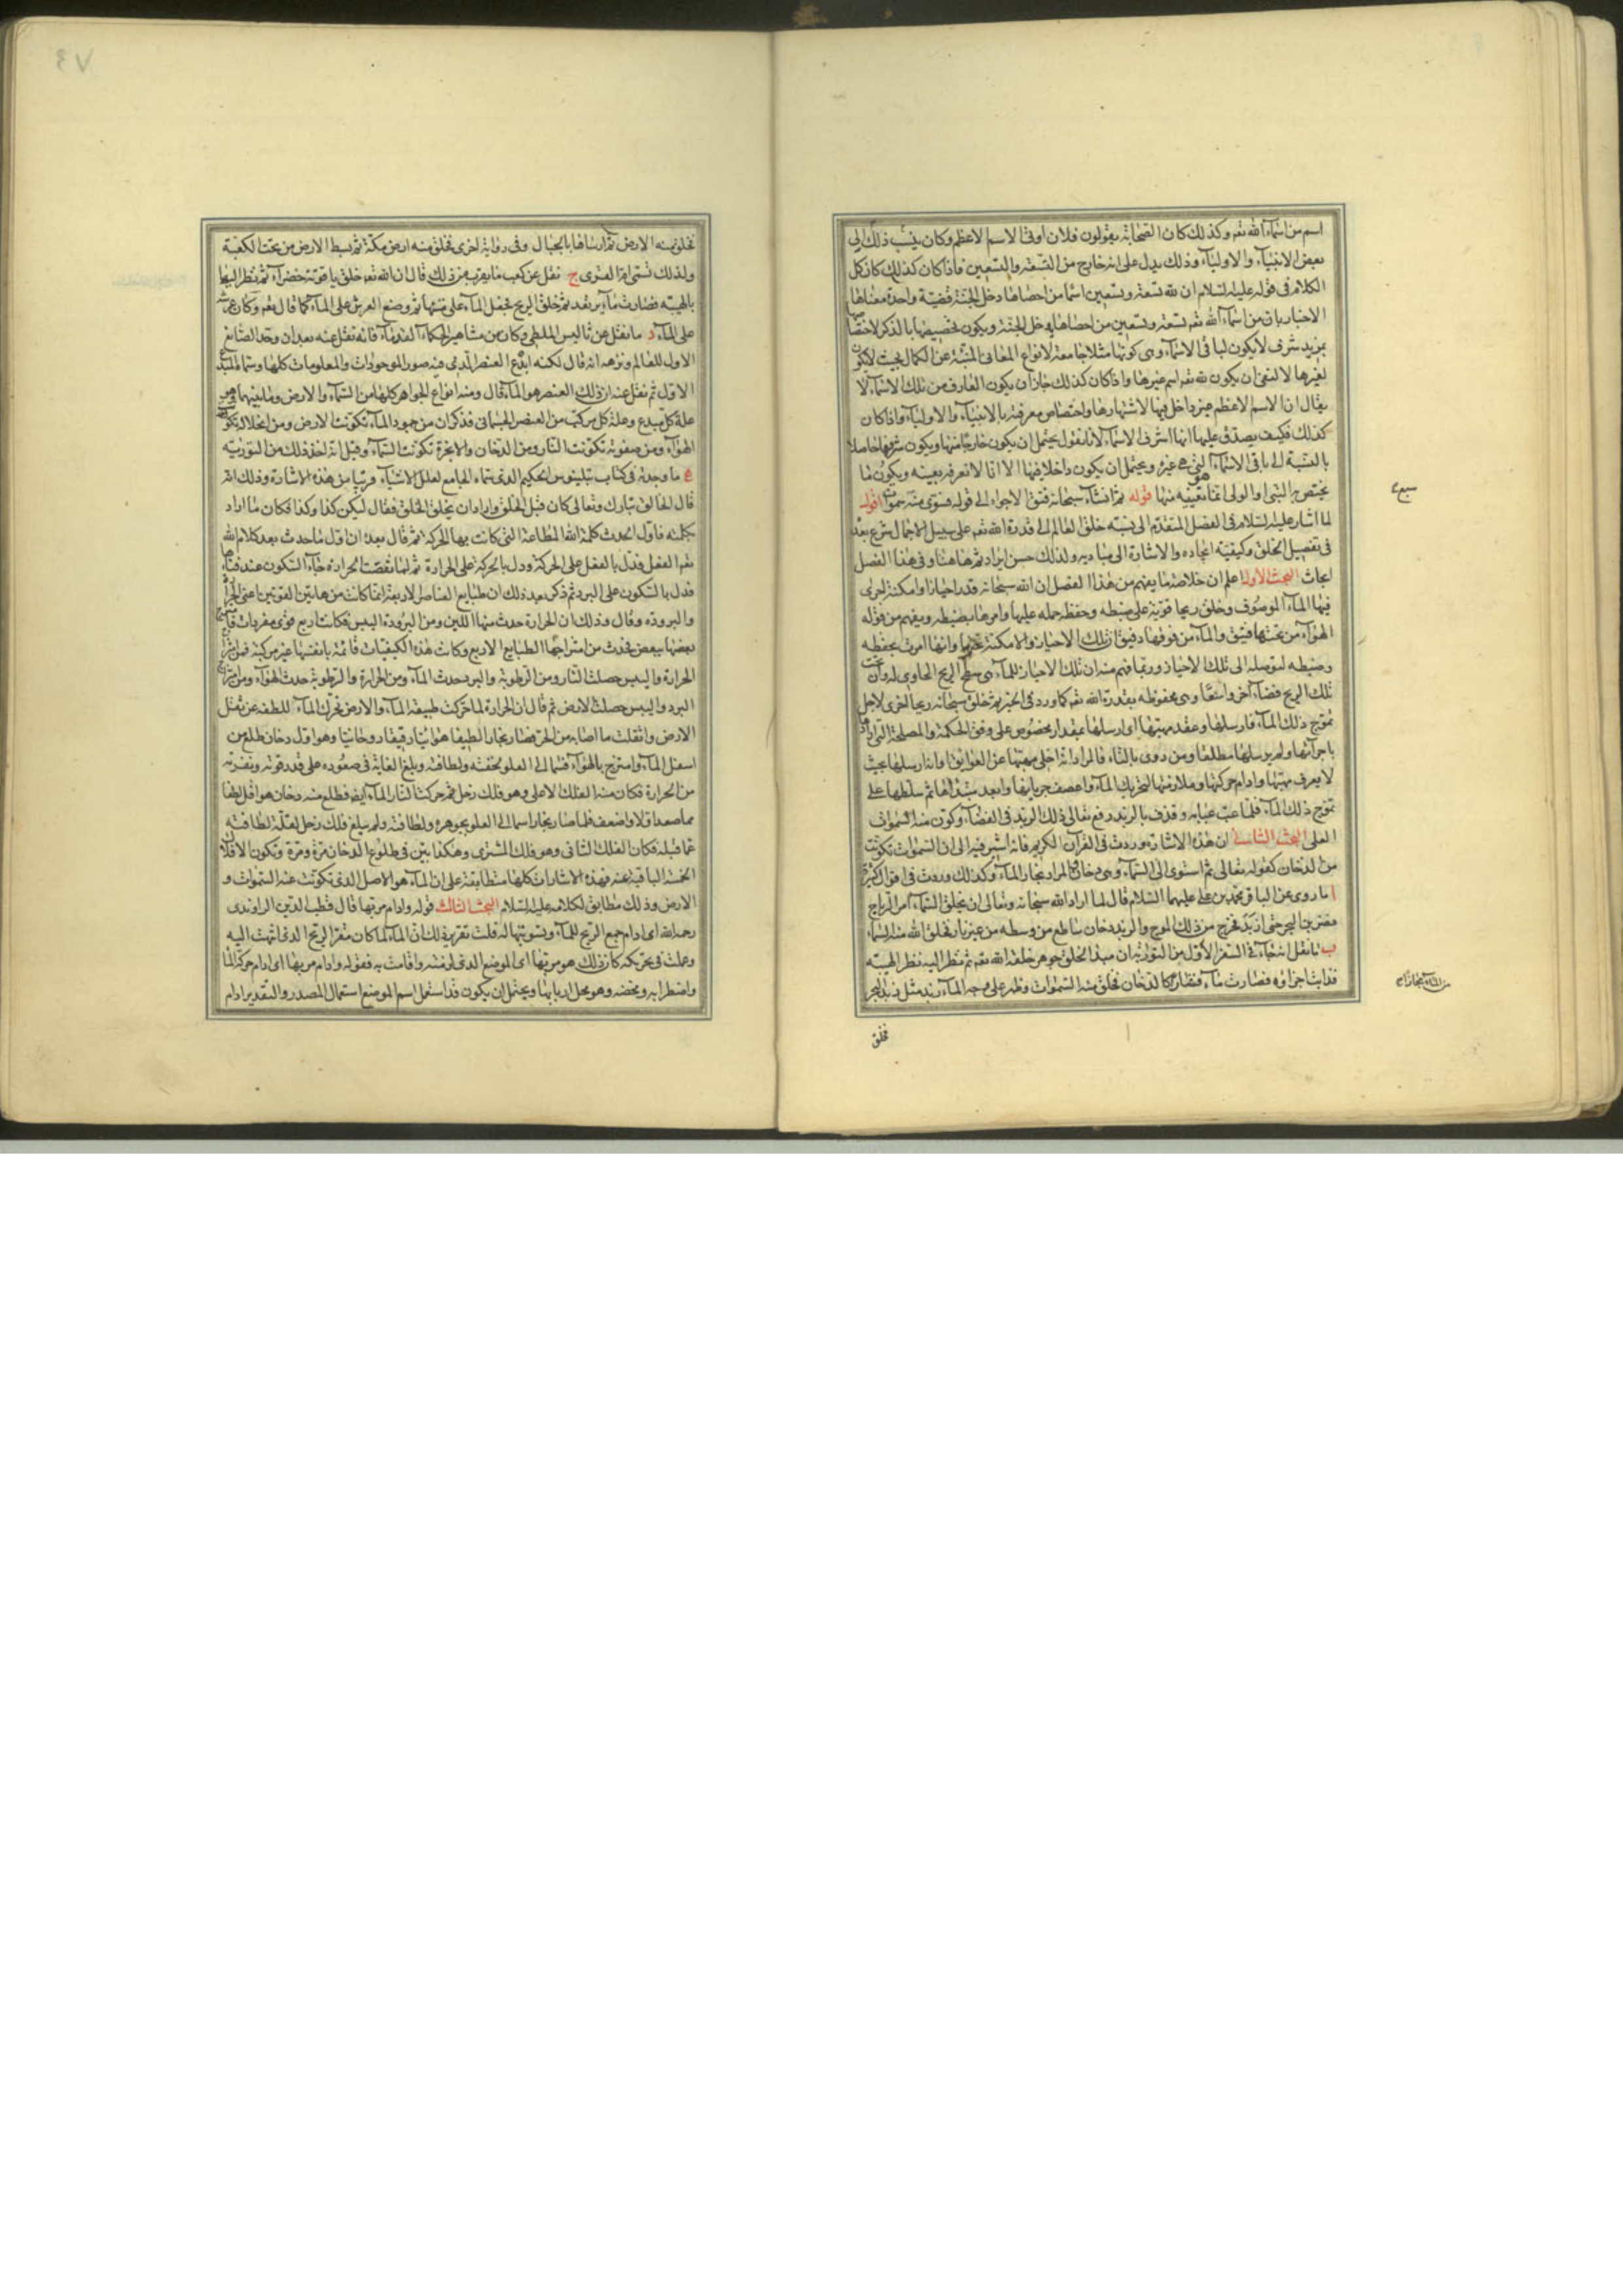 اسم من اسمآء الله تعم وكذلك كان الصحابة يقولون فلان اوتى الاسم الاعظم وكان ينسب ذلك الى
بعض الانبيآء والاوليآء وذلك يدل على انه خارج من التسعة والتسعين فاذا كان كذلك كان كل
الكلام فى قوله عليه السلام ان لله تسعة وتسعين اسما من احصاها دخل الجنة قضية واحدة معناها
الاخبار بان من اسمآء الله تعم تسعة وتسعين من احصاها يدخل الجنة ويكون تخصيصها بالذكر لاختصاصها
بمزيد شرف لا يكون لباقى الاسمآء وهى كونها مثلا جامعة لانواع المعانى المنبئة عن الكمال بحيث لا يكون
لغيرها لا لنفى ان يكون لله تعم اسم غيرها واذا كان كذلك جاز ان يكون العارف من تلك الاسمآء لا
يقال ان الاسم الاعظم غير داخل فيها لاشتهارها واختصاص معرفته بالانبيآء والاوليآء واذا كان
كذلك فكيف يصدق عليها انها اشرف الاسمآء لانا نقول يحتمل ان يكون خارجا منها ويكون شرفها حاصلا
بالنسبة الى باقى الاسمآء التى هى غيره ويحتمل ان يكون داخلا فيها الا انا لا نعرفه بعينه ويكون ما
يختص به النبى او الولى انما تعيينه منها قوله ثم انشآء سبحانه فتق الاجوآء الى قوله فسوى منه سبع سموات اقول
لما اشار عليه السلام فى الفصل المتقدم الى نسبة خلق العالم الى قدرة الله تعم على سبيل الاجمال شرع بعده
فى تفصيل الخلق وكيفية ايجاده والاشارة الى مباديه ولذلك حسن ايراد ثم هاهنا وفى هذا الفصل
ابحاث البحث الاول اعلم ان خلاصة ما يفهم من هذا الفصل ان الله سبحانه قدر احيازا وامكنة اجرى
فيها المآء الموصوف وخلق ريحا قوية على ضبطه وحفظه حمله عليها وامرها بضبطه ويفهم من قوله
الهوآء من تحتها فتيق والمآء من فوقها دفيق ان تلك الاحياز والامكنة تحتها وانها امرت بحفظه
وضبطه لتوصله الى تلك الاحياز وربما فهم منه ان تلك الاحياز للمآء هى سطح الريح الحاوى له وان تحت
تلك الريح فضآء آخر واسعا وهى محفوظة بقدرة الله تعم كما ورد فى الخبر ثم خلق سبحانه ريحا اخرى لاجل
تموج ذلك المآء فارسلها وعقد مهبها اى ارسلها بمقدار مخصوص على وفق الحكمة والمصلحة التى ارادها
باجرآئها ولم يرسلها مطلقا ومن روى بالتآء فالمراد انه اخلى مهبها عن العوايق او انه ارسلها بحيث
لا يعرف مهبها وادام حركتها وملازمتها لتحريك المآء واعصف جريانها وابعد مبتداها ثم سلطها على
تموج ذلك المآء فلما عب عبابه وقذف بالزبد رفع تعالى ذلك الزبد فى الفضآء وكون منه السموات
العلى البحث الثانى ان هذه الاشارة وردت فى القرآن الكريم فانه اشير فيه الى ان السموات تكونت
من الدخان كقوله تعالى ثم استوى الى السمآء وهى دخان والمراد بخار المآء وكذلك وردت فى اقوال كثيرة
ا ما روى عن الباقر محمد بن على عليهما السلام قال لما اراد الله سبحانه وتعالى ان يخلق السمآء امر الرياح
فضربن البحر حتى ازبد فخرج من ذلك الموج والزبد دخان ساطع من وسطه من غير نار فخلق الله منه السمآء
ب ما نقل انه جآء فى السفر الاول من التورية ان مبدا الخلق جوهر خلقه الله تعم ثم نظر اليه نظر الهيبة
فذابت اجزاؤه فصارت مآء فثار من المآء بخار كالدخان فخلق منه السموات وظهر على وجه المآء زبد مثل زبد البحر
فخلق
فخلق منه الارض ثم ارساها بالجبال وفى رواية اخرى فخلق منه ارض مكة ثم بسط الارض من تحت الكعبة
ولذلك تسمى ام القرى ج نقل عن كعب ما يقرب من ذلك قال ان الله تعم خلق ياقوتة خضرآء ثم نظر اليها
بالهيبة فصارت مآء يرتعد ثم خلق الريح فجعل المآء على متنها ثم وضع العرش على المآء كما قال تعم وكان عرشه
على المآء د ما نقل عن ثاليس الملطى وكان من مشاهير الحكمآء القدمآء فانه نقل عنه بعد ان وحد الصانع
الاول للعالم ونزهه انه قال لكنه ابدع العنصر الذى فيه صور الموجودات والمعلومات كلها وسماه المبدع
الاول ثم نقل عنه ان ذلك العنصر هو المآء قال ومنه انواع الجواهر كلها من السمآء والارض وما بينهما وهو
علة كل مبدع وعلة كل مركب من العنصر الجسمانى فذكر ان من جمود المآء تكونت الارض ومن انحلاله تكون
الهوآء ومن صفوته تكونت النار ومن الدخان والابخرة تكونت السمآء وقيل انه اخذ ذلك من التورية
ه ما وجدته فى كتاب بلينوس الحكيم الذى سماه الجامع لعلل الاشيآء قريبا من هذه الاشارة وذلك انه
قال الخالق تبارك وتعالى كان قبل الخلق واراد ان يخلق الخلق فقال ليكن كذا وكذا فكان ما اراد
بكلمته فاول الحدث كلمة الله المطاعة التى كانت بها الحركة ثم قال بعد ان اول ما حدث بعد كلام الله
تعم الفعل فدل بالفعل على الحركة ودل بالحركة على الحرارة ثم لما نقصت الحرارة جآء السكون عند فنآئها
فدل بالسكون على البرد ثم ذكر بعد ذلك ان طبايع العناصر الاربعة انما كانت من هاتين القوتين اعنى الحر
والبرودة وقال وذلك ان الحرارة حدث منها اللين ومن البرودة اليبس فكانت اربع قوى مفردات فامتزج
بعضها ببعض فحدث من امتزاجها الطبايع الاربع وكانت هذه الكيفيات قائمة بانفسها غير مركبة فمن امتزاج
الحرارة واليبس حصلت النار ومن الرطوبة والبرد حدث المآء ومن الحرارة والرطوبة حدث الهوآء ومن امتزاج
البرد واليبس حصلت الارض ثم قال ان الحرارة لما حركت طبيعة المآء والارض تحرك المآء للطفه عن ثقل
الارض وانقلب ما اصابه من الحر فصار بخارا لطيفا هوائيا رقيقا روحانيا وهو اول دخان طلع من
اسفل المآء وامتزج بالهوآء فسما الى العلو لخفته ولطافته وبلغ الغاية فى صعوده على قدر قوته ونفرته
من الحرارة فكان منه الفلك الاعلى وهو فلك زحل ثم حركت النار المآء ايضا فطلع منه دخان هو اقل لطفا
مما صعد اولا واضعف فلما صار بخارا سما الى العلو بجوهره ولطافته ولم يبلغ فلك زحل لقلة لطافته
عما قبله فكان الفلك الثانى وهو فلك المشترى وهكذا بين فى طلوع الدخان مرة ومرة وتكون الافلاك
الخمسة الباقية عنه فهذه الاشارات كلها متطابقة على ان المآء هو الاصل الذى تكونت عنه السموات و
الارض وذلك مطابق لكلامه عليه السلام البحث الثالث قوله وادام مربها قال قطب الدين الراوندى
رحمه الله اى ادام جمع الريح للمآء وتسويتها له قلت تقرير ذلك ان المآء لما كان مقر الريح الذى انتهت اليه
وعملت فى تحريكه كان ذلك هو مربها اى الموضع الذى لزمته واقامت به فقوله وادام مربها اى ادام حركة المآء
واضطرابه ومخضه وهو محل اربابها ويحتمل ان يكون قد استعمل اسم الموضع استعمال المصدر والتقدير ادام